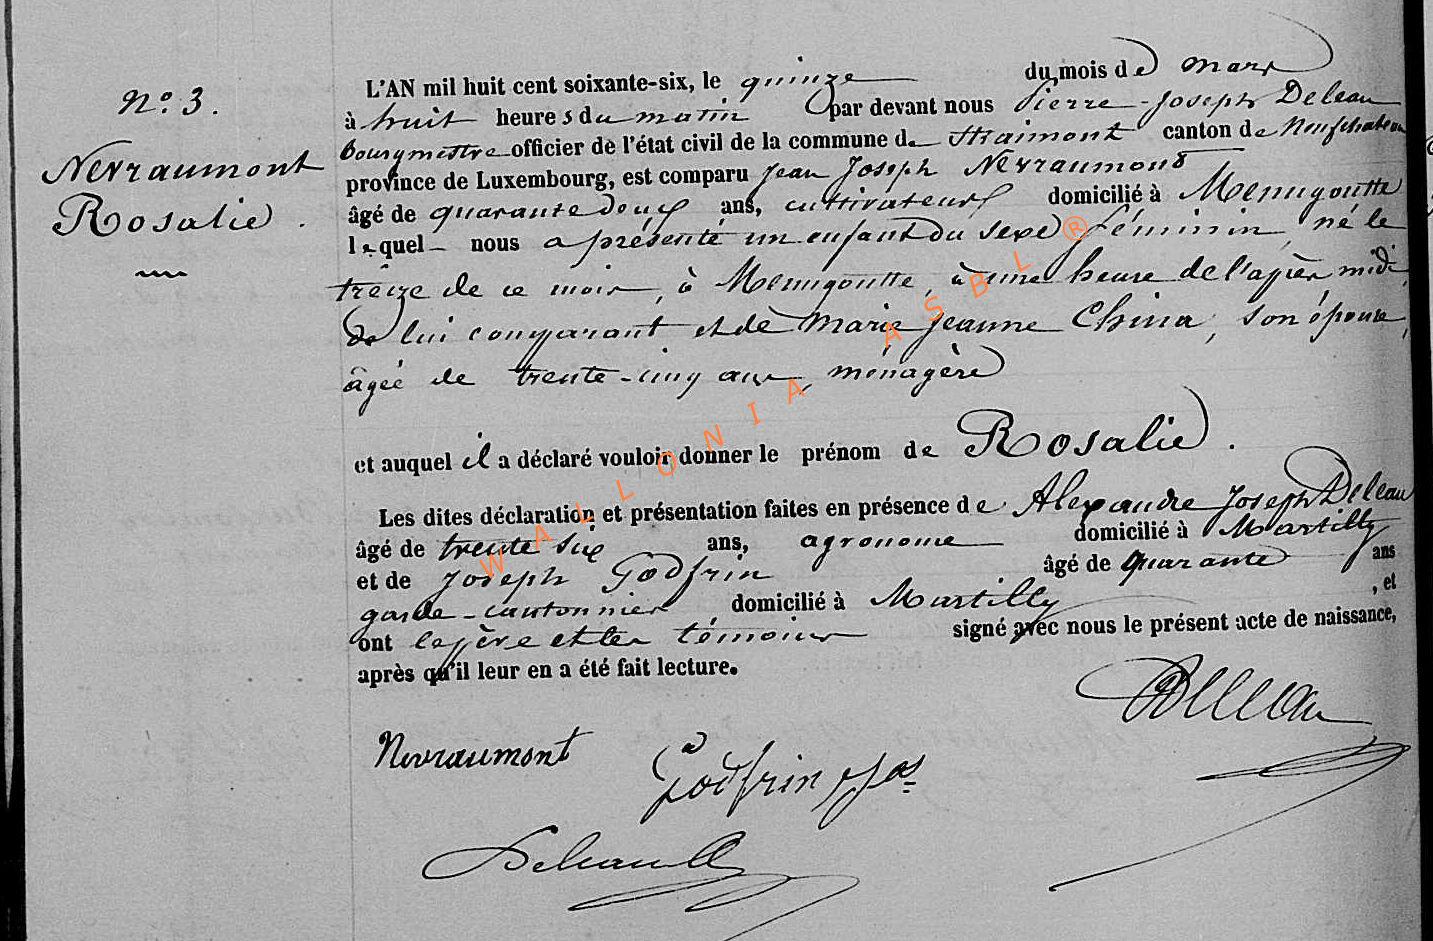 N° 3.
Nevraumont
Rosalie.
L'AN mil huit cent soixante-six, le quinze du mois de mars
à huit heures du matin par devant nous Pierre-Joseph Deleau
bourgmestre officier de l'état civil de la commune de Straimont canton de Neufchateau
province de Luxembourg, est comparu Jean Joseph Nevraumont
âgé de quarante deux ans, cultivateur, domicilié à Menugoutte
lequel nous a présenté un enfant du sexe féminin, né le
treize de ce mois, à Menugoutte, à une heure de l'après midi,
de lui comparant et de Marie Jeanne China, son épouse,
âgée de trente-cinq ans, ménagère
et auquel il a déclaré vouloir donner le prénom de Rosalie.
Les dites déclaration et présentation faites en présence de Alexandre Joseph Deleau
âgé de trente six ans, agronome domicilié à Martilly
et de Joseph Godfrin âgé de quarante ans
garde-cantonnier domicilié à Martilly, et
ont le père et les témoins signé avec nous le présent acte de naissance,
après qu'il leur en a été fait lecture.
Deleau
Nevraumont
Godfrin Jos
WALLONIA ASBL ®